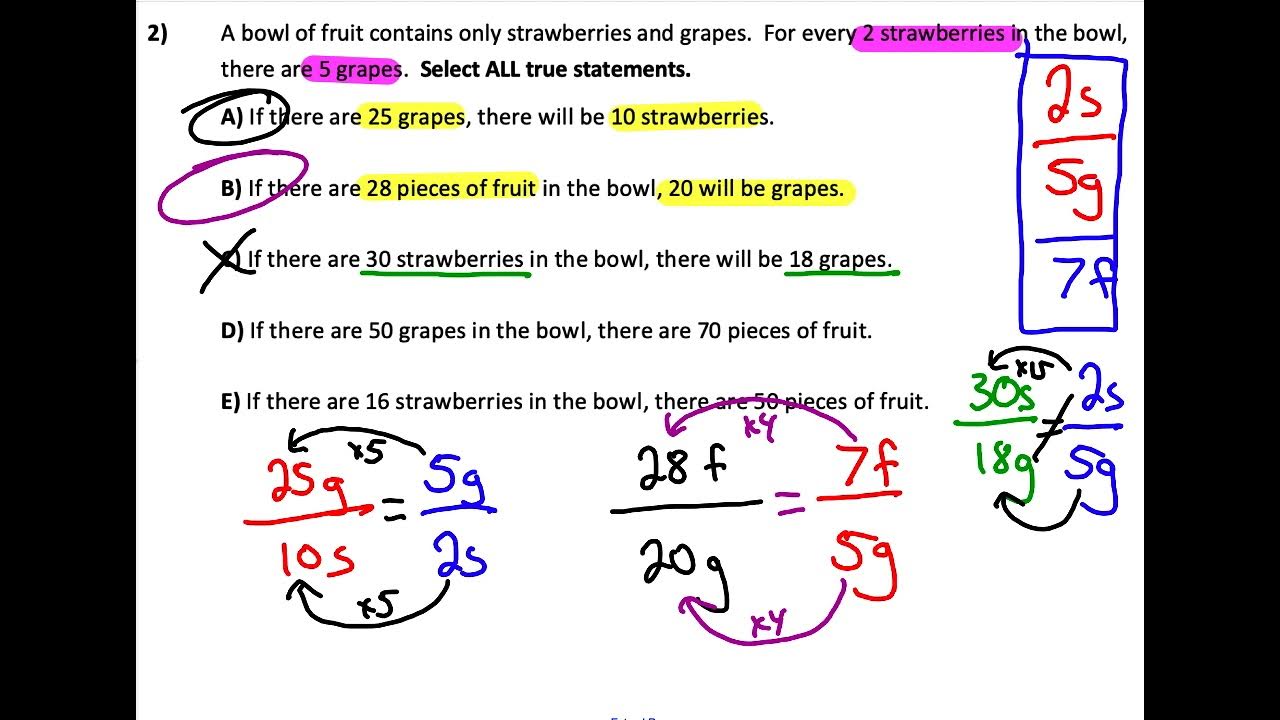 2) A bowl of fruit contains only strawberries and grapes. For every 2 strawberries in the bowl,
there are 5 grapes. Select ALL true statements.
A) If there are 25 grapes, there will be 10 strawberries.
B) If there are 28 pieces of fruit in the bowl, 20 will be grapes.
C) If there are 30 strawberries in the bowl, there will be 18 grapes.
D) If there are 50 grapes in the bowl, there are 70 pieces of fruit.
E) If there are 16 strawberries in the bowl, there are 50 pieces of fruit.
2s
5g
7f
x15
30s ≠ 2s
18g 5g
x5
25g = 5g
10s 2s
x5
x4
28f = 7f
20g 5g
x4